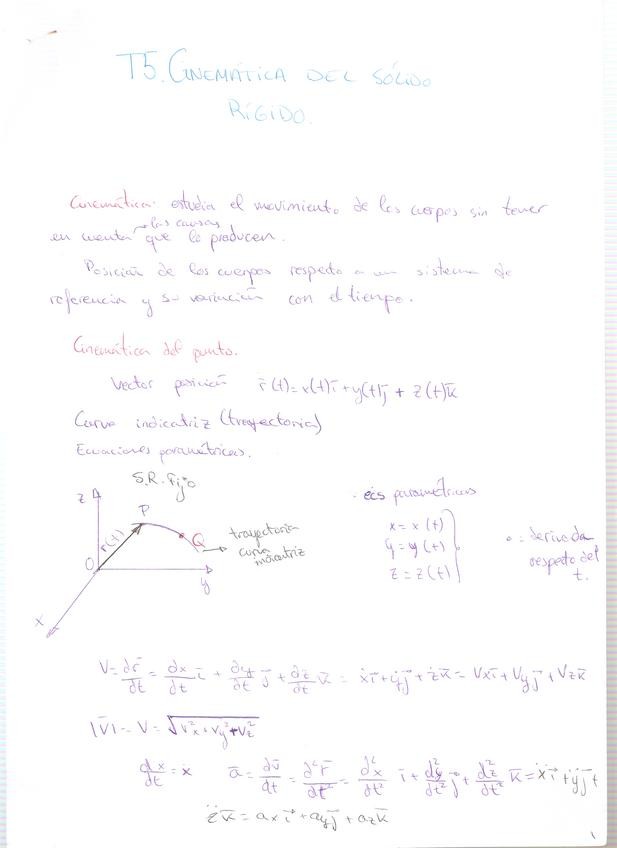 T5. CINEMÁTICA DEL SÓLIDO
RÍGIDO.
Cinemática: estudia el movimiento de los cuerpos sin tener
las causas
en cuenta que lo producen.
Posición de los cuerpos respecto a un sistema de
referencia y su variación con el tiempo.
Cinemática del punto.
Vector posición r̄(t) = x(t)ī + y(t)j̄ + z(t)k̄
Curva indicatriz (trayectoria)
Ecuaciones paramétricas.
S.R. Fijo
z
P
r(t)
Q
trayectoria
curva
indicatriz
O
y
x
ecs paramétricas
x = x(t)
y = y(t)
z = z(t)
° = derivada
respecto del
t.
V = dr̄/dt = dx/dt ī + dy/dt j̄ + dz/dt k̄ = ẋī + ẏj̄ + żk̄ = Vxī + Vyj̄ + Vzk̄
|V̄| = V = √(V²x + Vy² + Vz²)
dx/dt = ẋ ā = dv̄/dt = d²r̄/dt² = d²x/dt² ī + d²y/dt² j̄ + d²z/dt² k̄ = ẍī + ÿj̄ +
z̈k̄ = axī + ayj̄ + azk̄
1